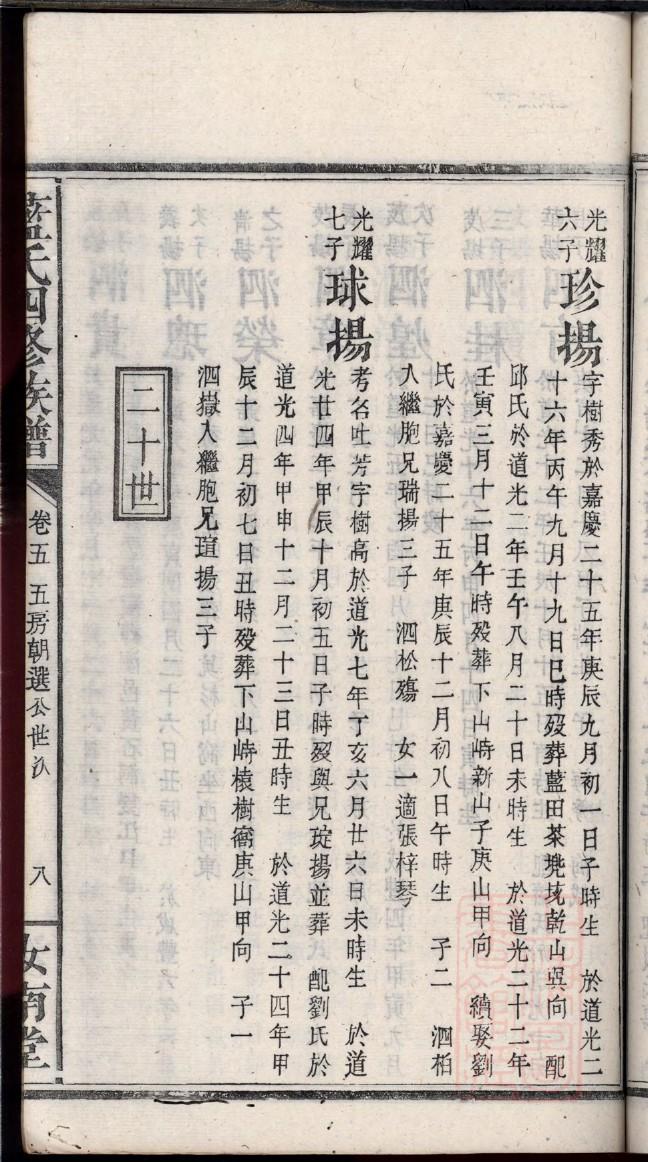 光耀六子 珍揚 字樹秀於嘉慶二十五年庚辰九月初一日子時生 於道光二
十六年丙午九月十九日巳時歿葬藍田茶凳㘭乾山巽向 配
邱氏於道光二年壬午八月二十日未時生 於道光二十二年
壬寅三月十二日午時歿葬下山嵵新山子庚山甲向 續娶劉
氏於嘉慶二十五年庚辰十二月初八日午時生 子二 泗柏
入繼胞兄瑞揚三子 泗松殤 女一適張梓琴
光耀七子 球揚 考名吐芳字樹高於道光七年丁亥六月廿六日未時生 於道
光廿四年甲辰十月初五日子時歿與兄琔揚並葬 配劉氏於
道光四年甲申十二月二十三日丑時生 於道光二十四年甲
辰十二月初七日丑時歿葬下山嵵榬樹窩庚山甲向 子一
泗嶽入繼胞兄瑄揚三子
二十世
藍氏四修族譜 卷五 五房朝選公世系 八 汝南堂